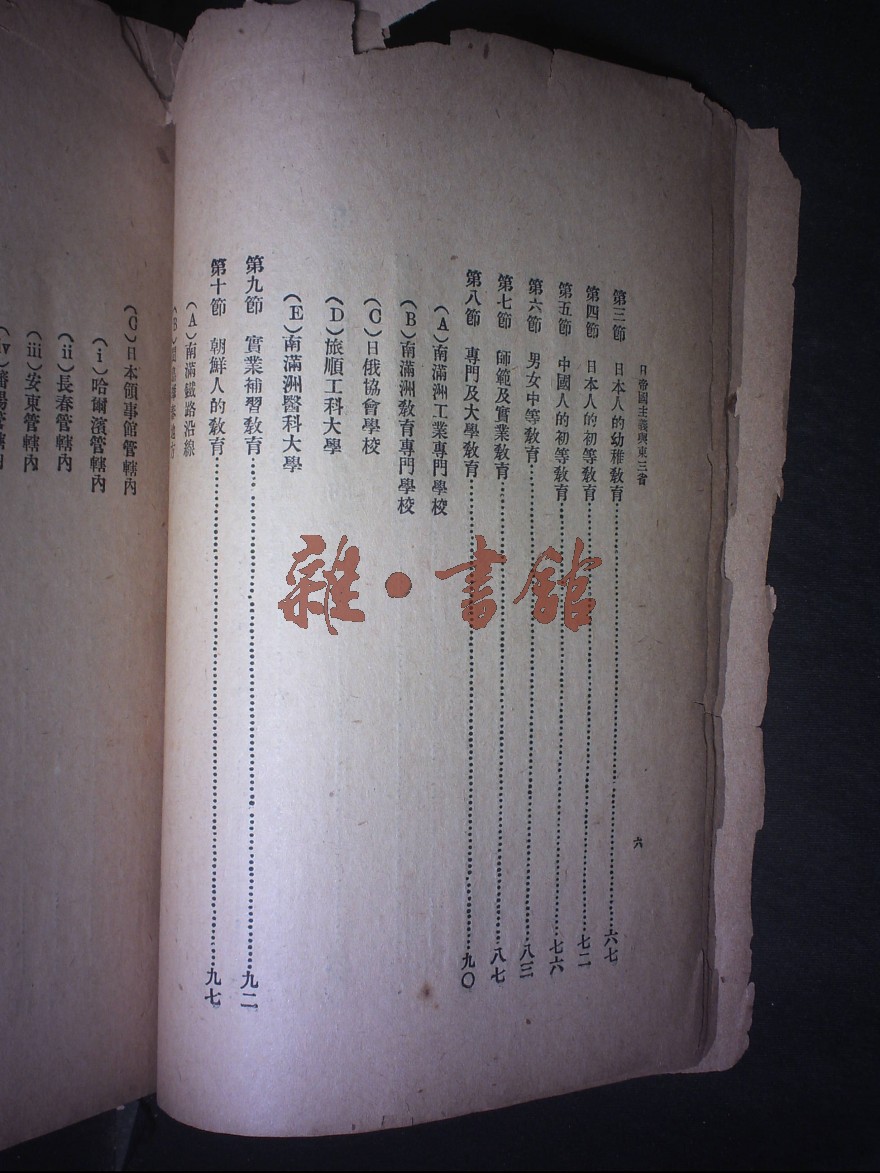 日帝國主義與東三省
六
第三節 日本人的幼稚敎育……六七
第四節 日本人的初等敎育……七二
第五節 中國人的初等敎育……七六
第六節 男女中等敎育……八三
第七節 師範及實業敎育……八七
第八節 專門及大學敎育……九〇
(A)南滿洲工業專門學校
(B)南滿洲敎育專門學校
(C)日俄協會學校
(D)旅順工科大學
(E)南滿洲醫科大學
第九節 實業補習敎育……九二
第十節 朝鮮人的敎育……九七
(A)南滿鐵路沿線
(B)
(C)日本領事館管轄內
(i)哈爾濱管轄內
(ii)長春管轄內
(iii)安東管轄內
(iv)瀋陽管轄內
雜·書館